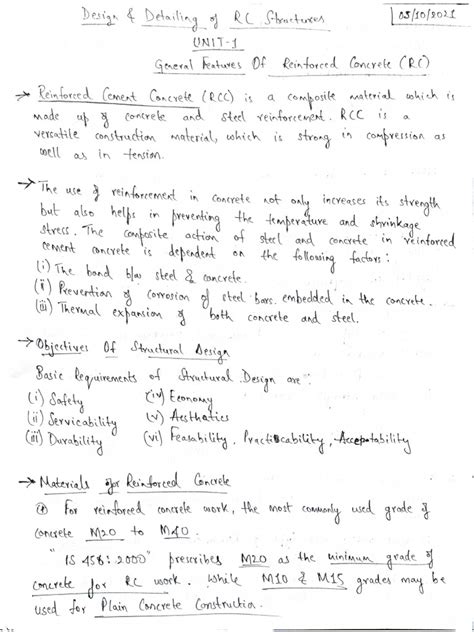 Design & Detailing of RC Structures
05/10/2021
UNIT-1
General Features Of Reinforced Concrete (RC)
→ Reinforced Cement Concrete (RCC) is a composite material which is
made up of concrete and steel reinforcement. RCC is a
versatile construction material, which is strong in compression as
well as in tension.
→ The use of reinforcement in concrete not only increases its strength
but also helps in preventing the temperature and shrinkage
stress. The composite action of steel and concrete in reinforced
cement concrete is dependent on the following factors:
(i) The bond b/w steel & concrete.
(ii) Prevention of corrosion of steel bars embedded in the concrete.
(iii) Thermal expansion of both concrete and steel.
→ Objectives Of Structural Design
Basic Requirements of Structural Design are:
(i) Safety (iv) Economy
(ii) Servicability (v) Aesthatics
(iii) Durability (vi) Feasability, Practicability, Acceptability
→ Materials for Reinforced Concrete
For reinforced concrete work, the most commonly used grade of
concrete M20 to M40.
"IS 456:2000" prescribes M20 as the minimum grade of
concrete for RC work. While M10 & M15 grades may be
used for Plain Concrete Construction.